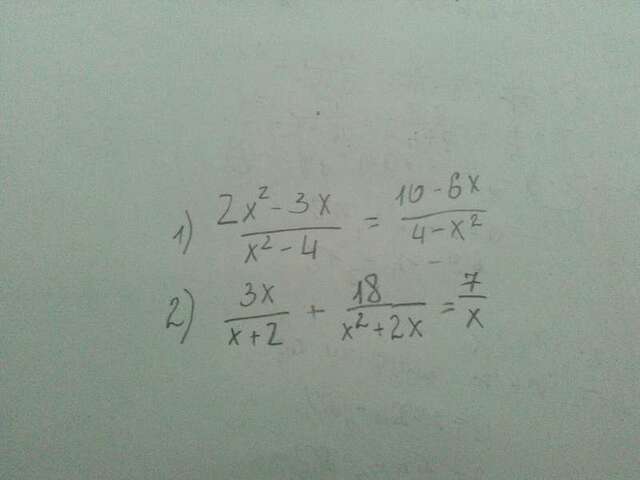 1) (2x² - 3x)/(x² - 4) = (10 - 6x)/(4 - x²)
2) 3x/(x + 2) + 18/(x² + 2x) = 7/x